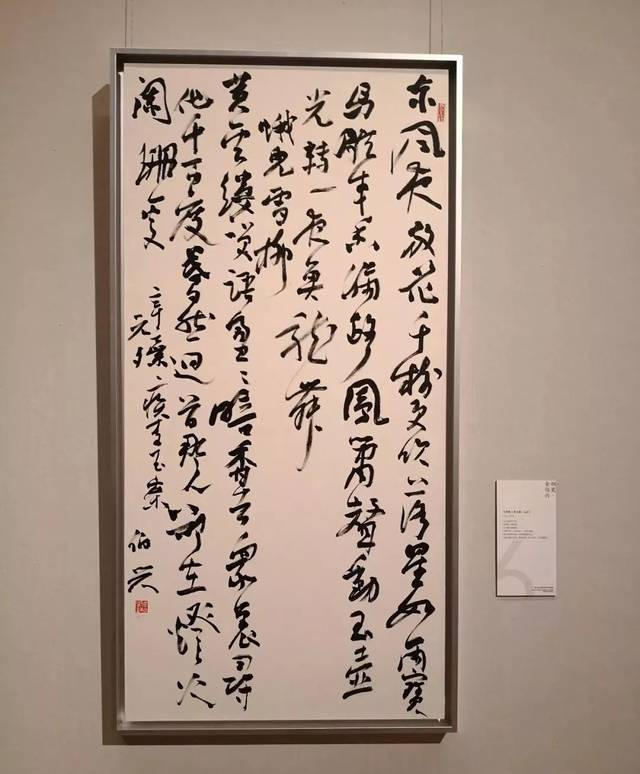 东風夜放花千樹更吹落星如雨寶
馬雕車香滿路鳳簫聲動玉壺
光轉一夜魚龍舞
蛾兒雪柳
黄金縷笑語盈〻暗香去衆裏尋
他千百度驀然迴首那人卻在燈火
闌珊處
辛棄疾青玉案
元夕
伯兴
6